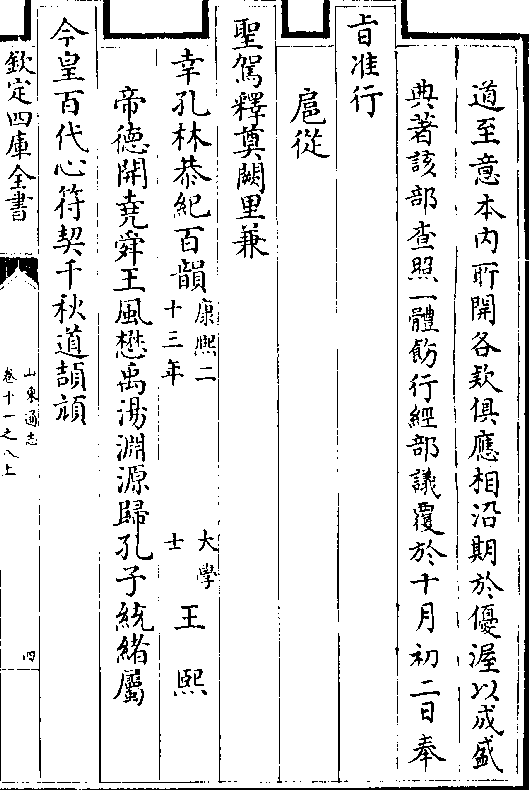 道至意本内所開各款俱應相沿期於優渥以成盛
典著該部查照一體飭行經部議覆於十月初二日奉
旨准行
扈從
聖駕釋奠闕里兼
幸孔林恭紀百韻康熙二十三年 大學士王熙
帝德開堯舜王風懋禹湯淵源歸孔子統緒屬
今皇百代心符契千秋道頡頏
欽定四庫全書 山東通志卷十一之八上 四